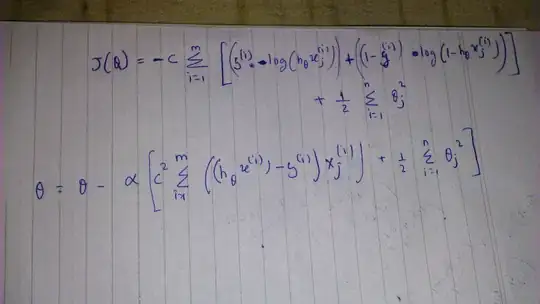 J(θ) = -c Σ_{i=1}^{m} [(y^{(i)} * log(h_θ x_j^{(i)})) + ((1 - y^{(i)}) * log(1 - h_θ x_j^{(i)}))]
+ 1/2 Σ_{i=1}^{n} θ_j^2
θ = θ - α [c^2 Σ_{i=1}^{m} ((h_θ x^{(i)}) - y^{(i)}) x_j^{(i)} + 1/2 Σ_{i=1}^{n} θ_j^2]